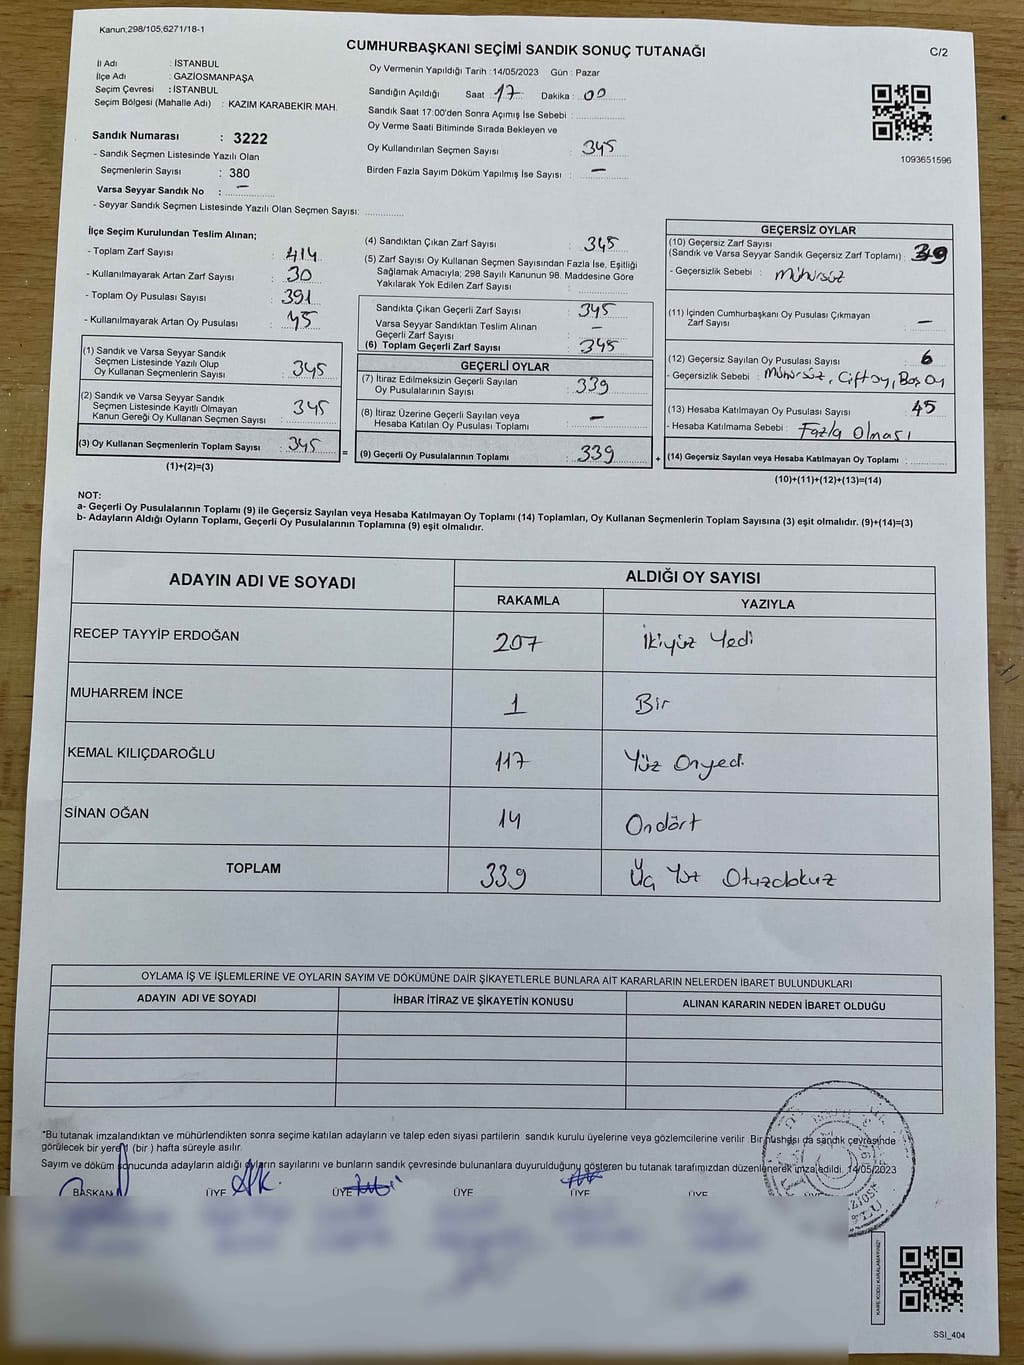 Kanun;298/105;6271/18-1
CUMHURBAŞKANI SEÇİMİ SANDIK SONUÇ TUTANAĞI
C/2
İl Adı : İSTANBUL
İlçe Adı : GAZİOSMANPAŞA
Seçim Çevresi : İSTANBUL
Seçim Bölgesi (Mahalle Adı) : KAZIM KARABEKİR MAH.
Sandık Numarası : 3222
- Sandık Seçmen Listesinde Yazılı Olan
Seçmenlerin Sayısı : 380
Varsa Seyyar Sandık No : –
- Seyyar Sandık Seçmen Listesinde Yazılı Olan Seçmen Sayısı:
Oy Vermenin Yapıldığı Tarih : 14/05/2023 Gün : Pazar
Sandığın Açıldığı Saat : 17 Dakika : 00
Sandık Saat 17:00'den Sonra Açımış İse Sebebi :
Oy Verme Saati Bitiminde Sırada Bekleyen ve
Oy Kullandırılan Seçmen Sayısı : 345
Birden Fazla Sayım Döküm Yapılmış İse Sayısı : –
1093651596
İlçe Seçim Kurulundan Teslim Alınan;
- Toplam Zarf Sayısı : 414
- Kullanılmayarak Artan Zarf Sayısı : 30
- Toplam Oy Pusulası Sayısı : 391
- Kullanılmayarak Artan Oy Pusulası : 45
(1) Sandık ve Varsa Seyyar Sandık
Seçmen Listesinde Yazılı Olup
Oy Kullanan Seçmenlerin Sayısı : 345
(2) Sandık ve Varsa Seyyar Sandık
Seçmen Listesinde Kayıtlı Olmayan
Kanun Gereği Oy Kullanan Seçmen Sayısı : 345
(3) Oy Kullanan Seçmenlerin Toplam Sayısı : 345
(1)+(2)=(3)
(4) Sandıktan Çıkan Zarf Sayısı : 345
(5) Zarf Sayısı Oy Kullanan Seçmen Sayısından Fazla İse, Eşitliği
Sağlamak Amacıyla; 298 Sayılı Kanunun 98. Maddesine Göre
Yakılarak Yok Edilen Zarf Sayısı :
Sandıkta Çıkan Geçerli Zarf Sayısı : 345
Varsa Seyyar Sandıktan Teslim Alınan
Geçerli Zarf Sayısı : –
(6) Toplam Geçerli Zarf Sayısı : 345
GEÇERLİ OYLAR
(7) İtiraz Edilmeksizin Geçerli Sayılan
Oy Pusulalarının Sayısı : 339
(8) İtiraz Üzerine Geçerli Sayılan veya
Hesaba Katılan Oy Pusulası Toplamı : –
= (9) Geçerli Oy Pusulalarının Toplamı : 339 +
GEÇERSİZ OYLAR
(10) Geçersiz Zarf Sayısı
(Sandık ve Varsa Seyyar Sandık Geçersiz Zarf Toplamı) :
- Geçersizlik Sebebi : Mühürsüz
(11) İçinden Cumhurbaşkanı Oy Pusulası Çıkmayan
Zarf Sayısı : –
(12) Geçersiz Sayılan Oy Pusulası Sayısı : 6
- Geçersizlik Sebebi : Mühürsüz, Çift oy, Boş oy
(13) Hesaba Katılmayan Oy Pusulası Sayısı : 45
- Hesaba Katılmama Sebebi : Fazla Olması
(14) Geçersiz Sayılan veya Hesaba Katılmayan Oy Toplamı :
(10)+(11)+(12)+(13)=(14)
NOT:
a- Geçerli Oy Pusulalarının Toplamı (9) ile Geçersiz Sayılan veya Hesaba Katılmayan Oy Toplamı (14) Toplamları, Oy Kullanan Seçmenlerin Toplam Sayısına (3) eşit olmalıdır. (9)+(14)=(3)
b- Adayların Aldığı Oyların Toplamı, Geçerli Oy Pusulalarının Toplamına (9) eşit olmalıdır.
ADAYIN ADI VE SOYADI
ALDIĞI OY SAYISI
RAKAMLA YAZIYLA
RECEP TAYYİP ERDOĞAN 207 İkiyüz Yedi
MUHARREM İNCE 1 Bir
KEMAL KILIÇDAROĞLU 117 Yüz Onyedi
SİNAN OĞAN 14 Ondört
TOPLAM 339 Üç Yüz Otuzdokuz
OYLAMA İŞ VE İŞLEMLERİNE VE OYLARIN SAYIM VE DÖKÜMÜNE DAİR ŞİKAYETLERLE BUNLARA AİT KARARLARIN NELERDEN İBARET BULUNDUKLARI
ADAYIN ADI VE SOYADI İHBAR İTİRAZ VE ŞİKAYETİN KONUSU ALINAN KARARIN NEDEN İBARET OLDUĞU
*Bu tutanak imzalandıktan ve mühürlendikten sonra seçime katılan adayların ve talep eden siyasi partilerin sandık kurulu üyelerine veya gözlemcilerine verilir Bir nüshası da sandık çevresinde
görülecek bir yere 1 (bir ) hafta süreyle asılır.
Sayım ve döküm sonucunda adayların aldığı oyların sayılarını ve bunların sandık çevresinde bulunanlara duyurulduğunu gösteren bu tutanak tarafımızdan düzenlenerek imzaledildi. 14/05/2023
BAŞKAN ÜYE ÜYE ÜYE ÜYE ÜYE
KARE KODU KARALAMAYINIZ!
SSİ_404